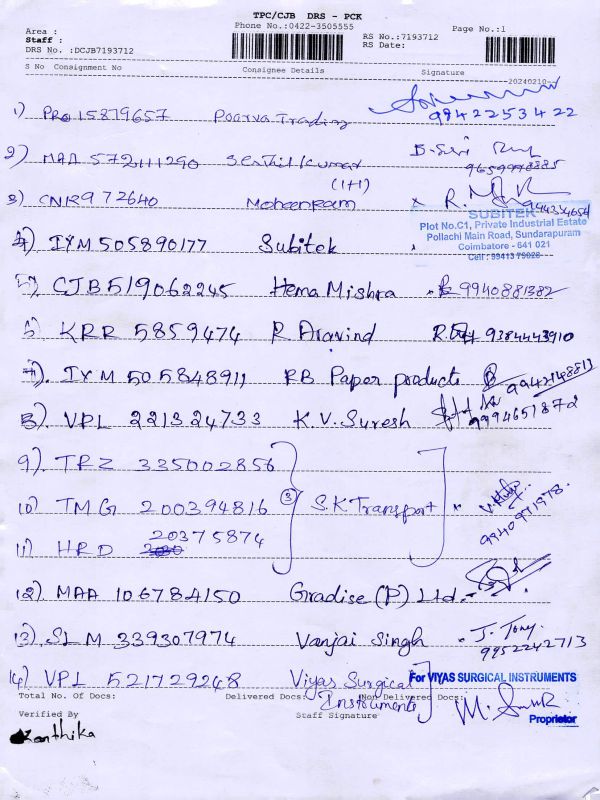 TPC/CJB DRS - PCK
Phone No.:0422-3505555
Area :
Staff :
DRS No. :DCJB7193712
RS No.:7193712
RS Date:
Page No.:1
S No Consignment No Consignee Details Signature
20240210
1) PRO15879657 Poorva Trading 9942253422
2) MAA 572111290 Senthil Kumar
(1+1)
3) CNR972640 Moheenram
SUBITEK
Plot No.C1, Private Industrial Estate
Pollachi Main Road, Sundarapuram
Coimbatore - 641 021
Cell : 99413 79028
4) IXM 505890177 Subitek
5) CJB519062245 Hema Mishra 9940881382
5) KRR 5859474 R Aravind 9384443910
7). IXM 505848911 RB Paper products 9942148813
8). VPL 221324733 K.V. Suresh 9994651872
9). TRZ 335002856
10) TMG 200394816 (3) S.K Transport
20375874
11) HRD
12). MAA 106784150 Gradise (P) Ltd.
13). SLM 339307974 Vanjai Singh J. Tony
9952242713
14) VPL 521729248 Viyas Surgical
Instruments
For VIYAS SURGICAL INSTRUMENTS
Proprietor
Total No. Of Docs: Delivered Docs: Non Delivered Docs:
Verified By Staff Signature
Kanthika